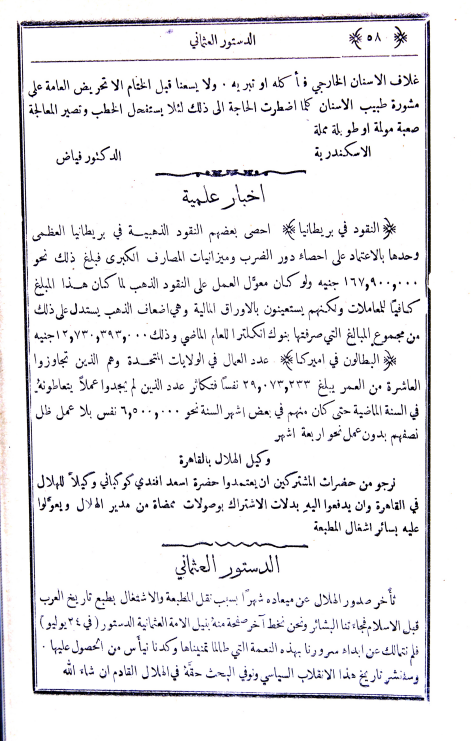 ٥٨ الدستور العثماني
غلاف الاسنان الخارجي فتأكله او تبريه ٠ ولا يسعنا قبل الختام الا تحريض العامة على
مشورة طبيب الاسنان كلما اضطرت الحاجة الى ذلك لئلا يستفحل الخطب وتصير المعالجة
صعبة مولمة او طويلة مملة
الاسكندرية الدكتور فياض
اخبار علمية
﴿ النقود في بريطانيا ﴾ احصى بعضهم النقود الذهبية في بريطانيا العظمى
وحدها بالاعتماد على احصاء دور الضرب وميزانيات المصارف الكبرى فبلغ ذلك نحو
١٦٧,٩٠٠,٠٠٠ جنيه ولو كان معوَّل العمل على النقود الذهب لما كان هذا المبلغ
كافيًا للمعاملات ولكنهم يستعينون بالاوراق المالية وهي اضعاف الذهب يستدل على ذلك
من مجموع المبالغ التي صرفتها بنوك انكلترا للعام الماضي وذلك ١٢,٧٣٠,٣٩٣,٠٠٠ جنيه
﴿ البطالون في اميركا ﴾ عدد العمال في الولايات المتحدة وهم الذين تجاوزوا
العاشرة من العمر يبلغ ٢٩,٠٧٣,٢٣٣ نفسًا فتكاثر عدد الذين لم يجدوا عملاً يتعاطونهُ
في السنة الماضية حتى كان منهم في بعض اشهر السنة نحو ٦,٥٠٠,٠٠٠ نفس بلا عمل ظل
نصفهم بدون عمل نحو اربعة اشهر
وكيل الهلال بالقاهرة
نرجو من حضرات المشتركين ان يعتمدوا حضرة اسعد افندي كوكباني وكيلاً للهلال
في القاهرة وان يدفعوا اليهِ بدلات الاشتراك بوصولات ممضاة من مدير الهلال ويعوّلوا
عليه بسائر اشغال المطبعة
الدستور العثماني
تأخر صدور الهلال عن ميعاده شهرًا بسبب نقل المطبعة والاشتغال بطبع تاريخ العرب
قبل الاسلام فجاءتنا البشائر ونحن نخط آخر صفحة منهُ بنيل الامة العثمانية الدستور ( في ٢٤ يوليو )
فلم نتمالك عن ابداء سرورنا بهذه النعمة التي طالما تمنيناها وكدنا نيأس من الحصول عليها ٠
وسننشر تاريخ هذا الانقلاب السياسي ونوفي البحث حقهُ في الهلال القادم ان شاء الله